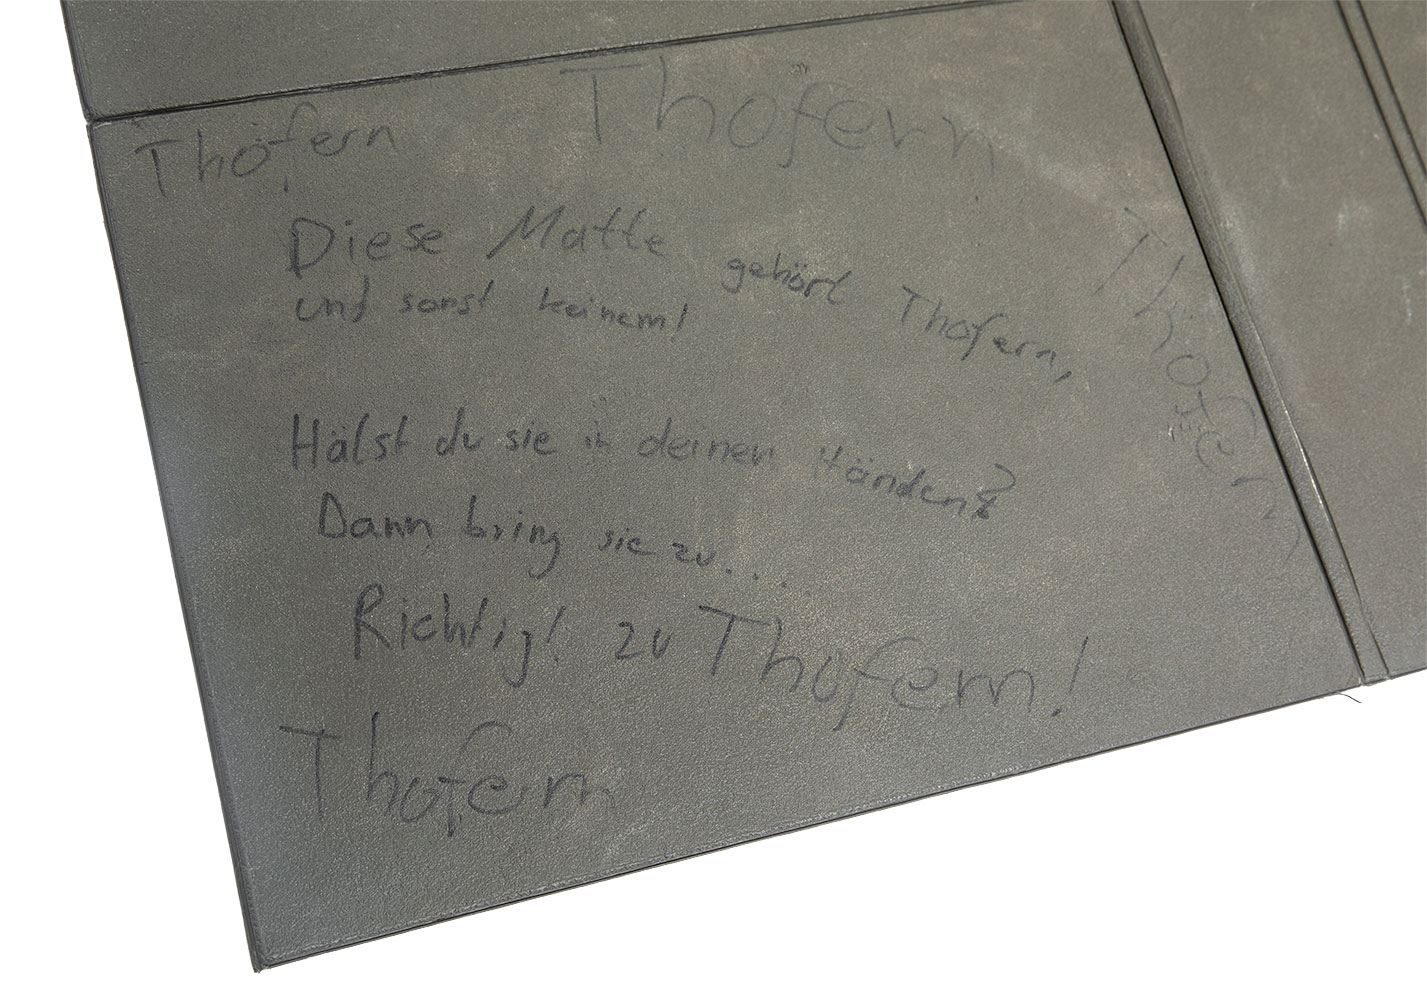 Thöfern
Thofern
Diese Matte gehört Thofern,
und sonst keinem!
Thöfern
Hälst du sie in deinen Händen?
Dann bring sie zu...
Richtig! zu Thofern!
Thofern